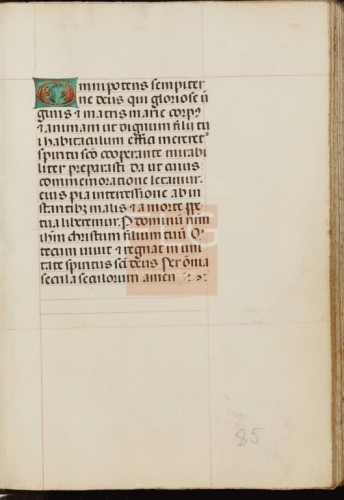 Omnipotens sempiter
ne deus qui gloriose ũ
guis & matris marie corp⁹
& animam ut dignum filii tu
i habitaculum effici meret᷒
spiritu scõ cooperante mirabi
liter preparasti da ut cuius
commemoratione letamur.
eius pia intercessione ab in
stantibus malis & a morte ppe
tua liberemur. P dominũ nrm̃
ihm̃ christum filium tuũ. Q
tecum uiuit & regnat in uni
tate spiritus scĩ deus Per om̃ia
secula seculorum amen
85